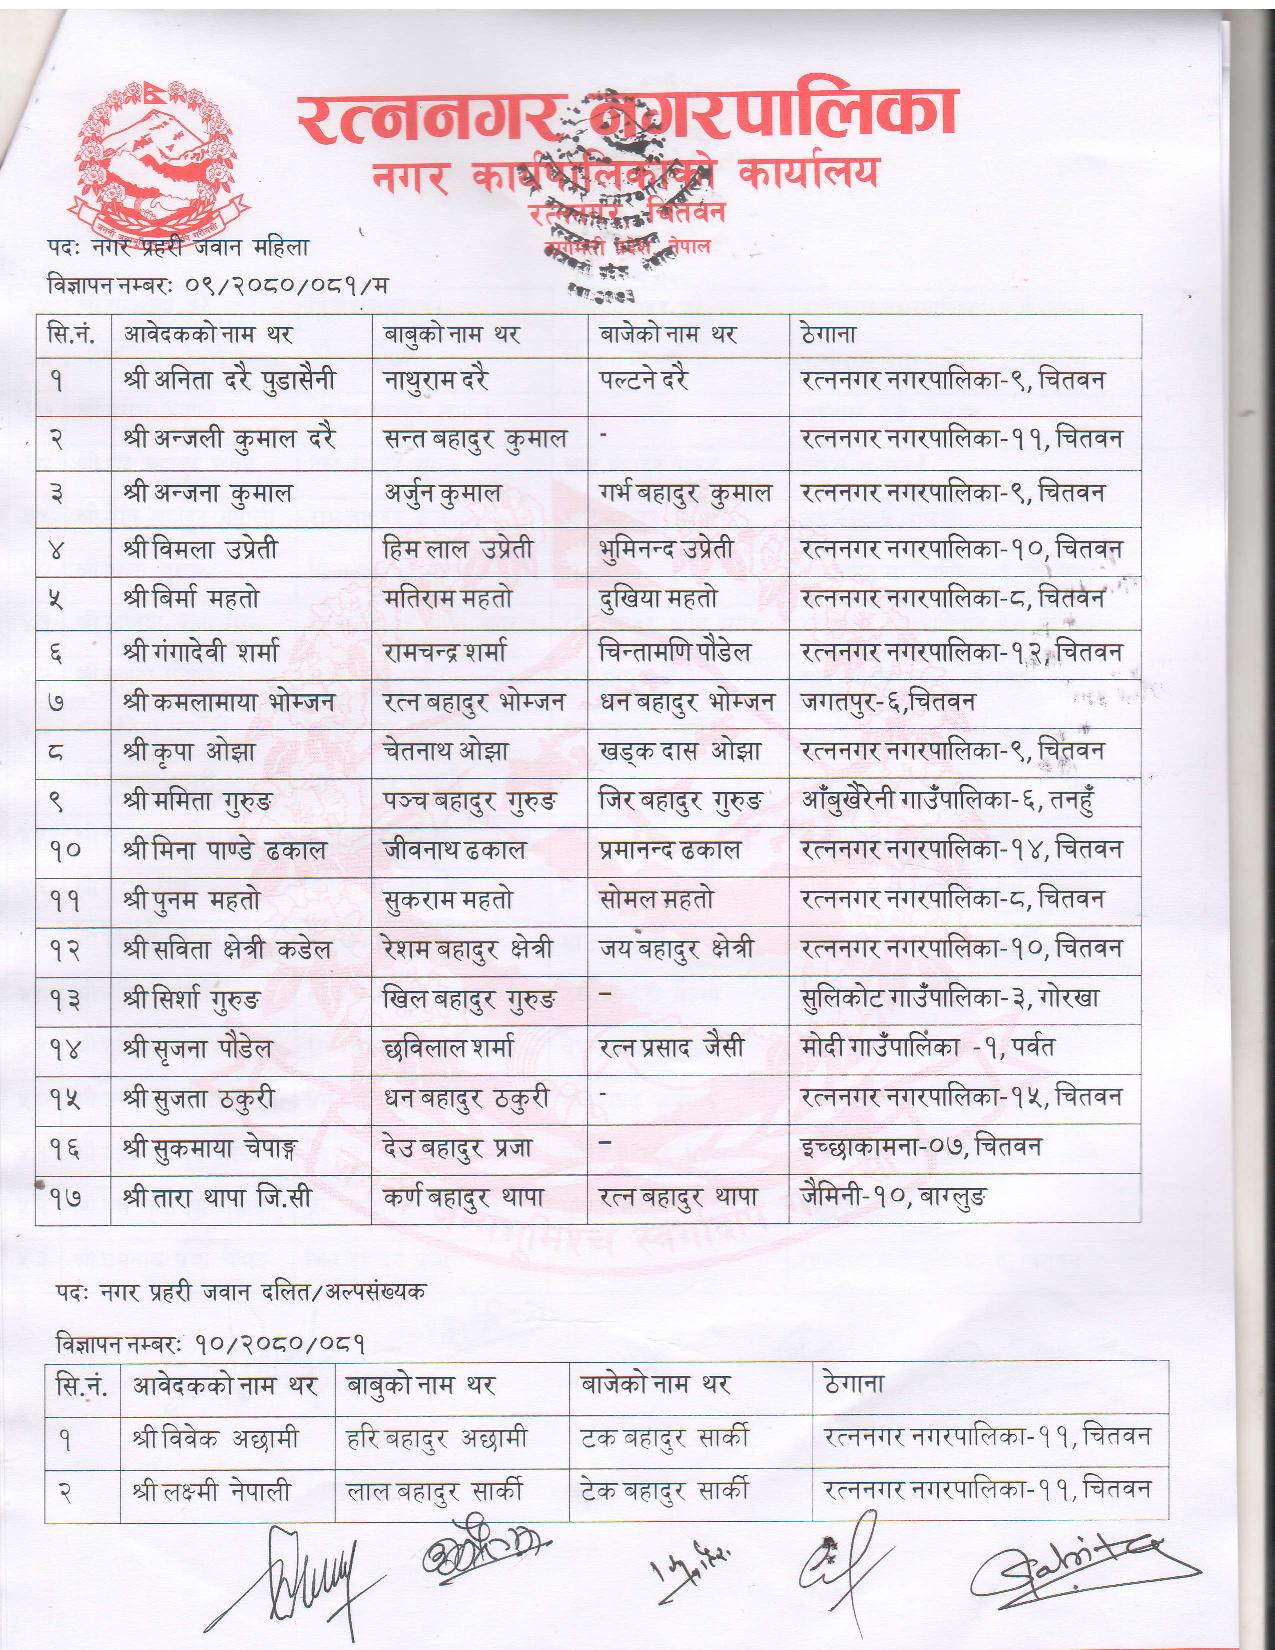 रत्ननगर नगरपालिका
नगर कार्यपालिकाको कार्यालय
रत्ननगर, चितवन
बागमती प्रदेश, नेपाल
पदः नगर प्रहरी जवान महिला
विज्ञापन नम्बरः ०९/२०८०/०८१/म
सि.नं. आवेदकको नाम थर बाबुको नाम थर बाजेको नाम थर ठेगाना
१ श्री अनिता दरै पुडासैनी नाथुराम दरै पल्टने दरै रत्ननगर नगरपालिका-९, चितवन
२ श्री अन्जली कुमाल दरै सन्त बहादुर कुमाल - रत्ननगर नगरपालिका-११, चितवन
३ श्री अन्जना कुमाल अर्जुन कुमाल गर्भ बहादुर कुमाल रत्ननगर नगरपालिका-९, चितवन
४ श्री विमला उप्रेती हिम लाल उप्रेती भुमिनन्द उप्रेती रत्ननगर नगरपालिका-१०, चितवन
५ श्री बिर्मा महतो मतिराम महतो दुखिया महतो रत्ननगर नगरपालिका-८, चितवन
६ श्री गंगादेवी शर्मा रामचन्द्र शर्मा चिन्तामणि पौडेल रत्ननगर नगरपालिका-१२, चितवन
७ श्री कमलामाया भोम्जन रत्न बहादुर भोम्जन धन बहादुर भोम्जन जगतपुर-६,चितवन
८ श्री कृपा ओझा चेतनाथ ओझा खड्क दास ओझा रत्ननगर नगरपालिका-९, चितवन
९ श्री ममिता गुरुङ पञ्च बहादुर गुरुङ जिर बहादुर गुरुङ आँबुखैरेनी गाउँपालिका-६, तनहुँ
१० श्री मिना पाण्डे ढकाल जीवनाथ ढकाल प्रमानन्द ढकाल रत्ननगर नगरपालिका-१४, चितवन
११ श्री पुनम महतो सुकराम महतो सोमल महतो रत्ननगर नगरपालिका-८, चितवन
१२ श्री सविता क्षेत्री कडेल रेशम बहादुर क्षेत्री जय बहादुर क्षेत्री रत्ननगर नगरपालिका-१०, चितवन
१३ श्री सिर्शा गुरुङ खिल बहादुर गुरुङ – सुलिकोट गाउँपालिका-३, गोरखा
१४ श्री सृजना पौडेल छविलाल शर्मा रत्न प्रसाद जैसी मोदी गाउँपालिका -१, पर्वत
१५ श्री सुजता ठकुरी धन बहादुर ठकुरी - रत्ननगर नगरपालिका-१५, चितवन
१६ श्री सुकमाया चेपाङ्ग देउ बहादुर प्रजा – इच्छाकामना-०७, चितवन
१७ श्री तारा थापा जि.सी कर्ण बहादुर थापा रत्न बहादुर थापा जैमिनी-१०, बाग्लुङ
पदः नगर प्रहरी जवान दलित/अल्पसंख्यक
विज्ञापन नम्बरः १०/२०८०/०८१
सि.नं. आवेदकको नाम थर बाबुको नाम थर बाजेको नाम थर ठेगाना
१ श्री विवेक अछामी हरि बहादुर अछामी टक बहादुर सार्की रत्ननगर नगरपालिका-११, चितवन
२ श्री लक्ष्मी नेपाली लाल बहादुर सार्की टेक बहादुर सार्की रत्ननगर नगरपालिका-११, चितवन
Sabita